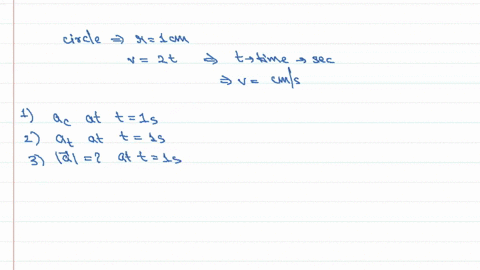 circle ⇒ r = 1 cm
v = 2t ⇒ t → time → sec
⇒ v = cm/s
1) a_c at t = 1s
2) a_t at t = 1s
3) |a⃗| = ? at t = 1s